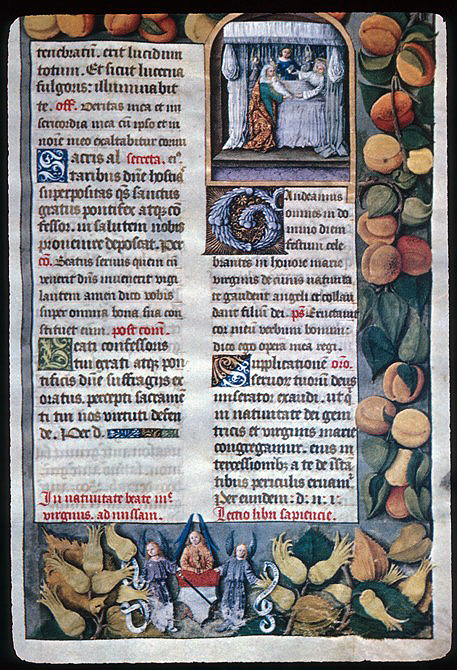 tenebratũ. erit lucidum
totum. Et sicut lucerna
fulgoris: illuminabit
te. off. Veritas mea et mi
sericordia mea cũ ipso et in
noĩe meo exaltabitur cornu
Sacris al secreta. eiꝰ
taribus dñe hostias
superpositas qs sanctus
gratus pontifex atqꝫ cõ
fessor. in salutem nobis
prouenire deposcat. Per
cõ. Beatus seruus quem cũ
venerit dñs inuenerit vigi
lantem amen dico vobis
super omnia bona sua con
stituet eum. post comũ.
Beati confessoris
tui grati atqꝫ pon
tificis dñe suffragijs ex
oratus. percepti sacramẽ
ti tui nos virtuti defen
de. Per d.
In natiuitate beate mᵉ
virginis. ad missam.
Gaudeamus
omnes in do
mino diem
festum cele
brantes in honore marie
virginis de cuius natiuita
te gaudent angeli et collau
dant filium dei. pṡ Eructauit
cor meum verbum bonum:
dico ego opera mea regi.
Supplicationẽ oro.
seruorũ tuorũ deus
miserator exaudi. ut qͥ
in natiuitate dei geni
tricis et virginis marie
congregamur. eius in
tercessionibꝫ a te de insta
tibus periculis eruamͬ.
Per eundem: d: n: i:
Lectio libri sapiencie.